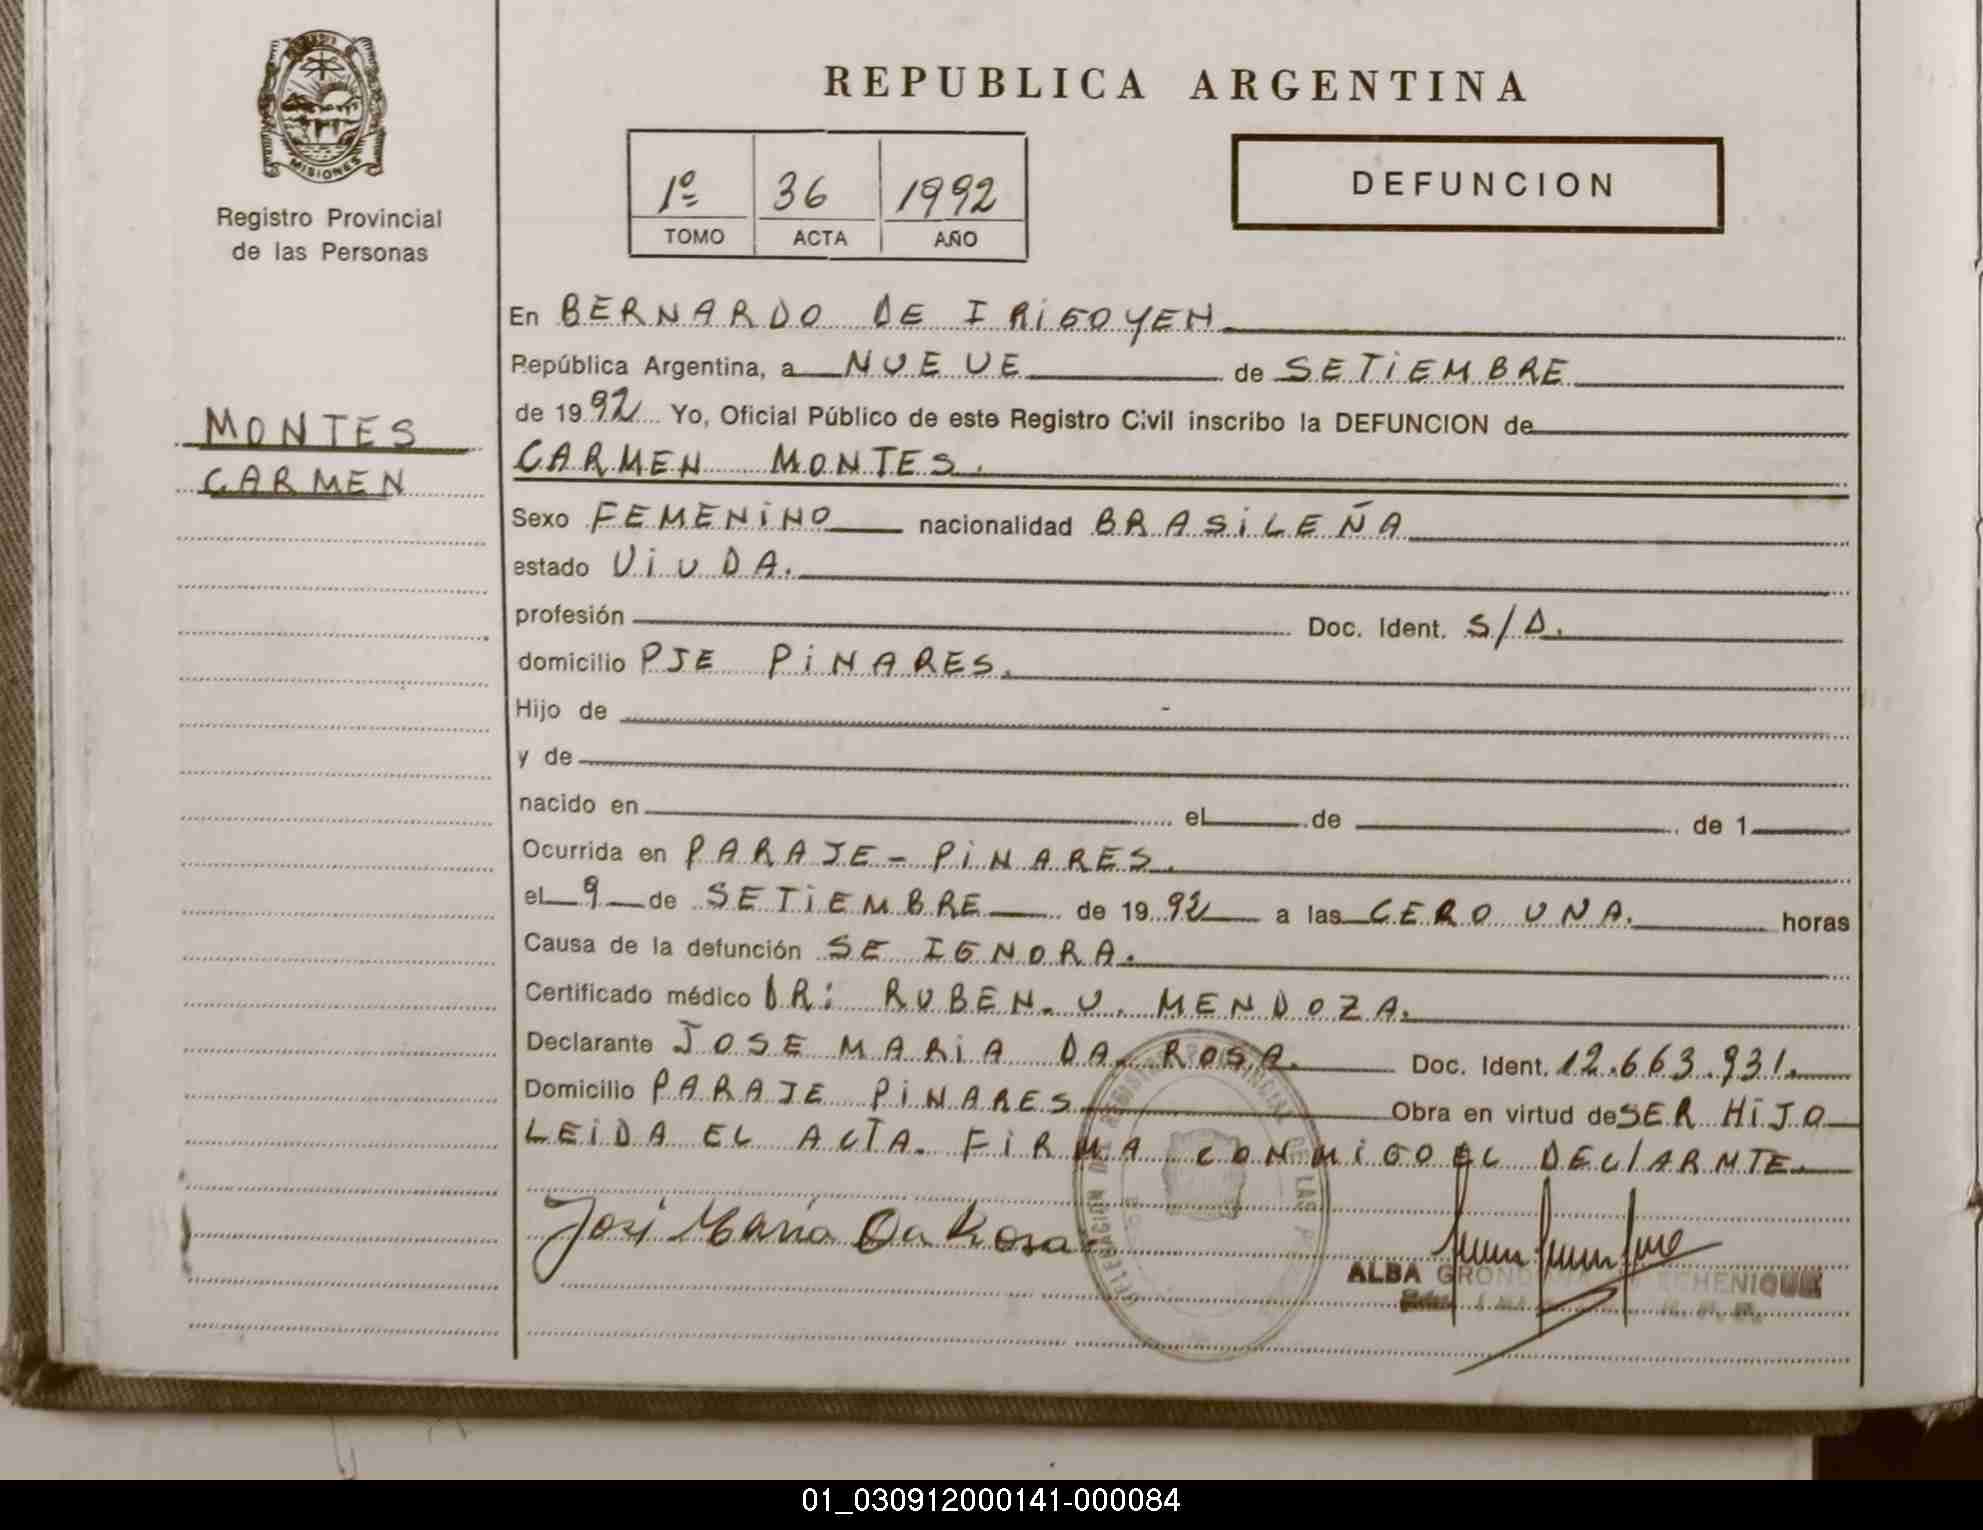 MISIONES
Registro Provincial
de las Personas
MONTES
CARMEN
REPUBLICA ARGENTINA
1º 36 1992
TOMO ACTA AÑO
DEFUNCION
En BERNARDO DE IRIGOYEN
República Argentina, a NUEVE de SETIEMBRE
de 1992 Yo, Oficial Público de este Registro Civil inscribo la DEFUNCION de
CARMEN MONTES.
Sexo FEMENINO nacionalidad BRASILEÑA
estado VIUDA.
profesión Doc. Ident. S/D.
domicilio PJE PINARES.
Hijo de
y de
nacido en el de de 1
Ocurrida en PARAJE - PINARES.
el 9 de SETIEMBRE de 1992 a las CERO UNA. horas
Causa de la defunción SE IGNORA.
Certificado médico DR: RUBEN. V. MENDOZA.
Declarante JOSE MARIA DA ROSA. Doc. Ident. 12.663.931.
Domicilio PARAJE PINARES Obra en virtud de SER HIJO
LEIDA EL ACTA. FIRMA CONMIGO EL DEClARNTE.
José María Da Rosa
ALBA
01_030912000141-000084